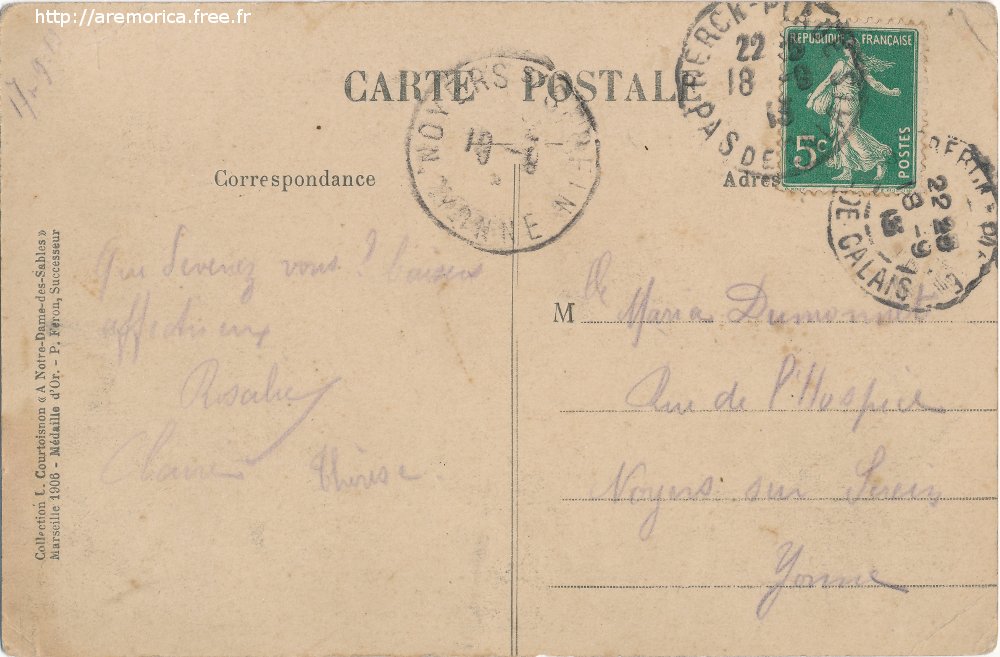 http://aremorica.free.fr
17-9-13
CARTE POSTALE
Correspondance
Adres
RÉPUBLIQUE FRANÇAISE
5c
POSTES
BERCK-PLAGE
22
18 -9
13
PAS DE CALAIS
22 25
18 -9
13
PAS DE CALAIS
NOYERS S. SEREIN
19 -9
YONNE
Que devenez vous ? Baisers
affectueux
Rosalie
Claire Thérèse.
M elle Maria Dumonnet
Rue de l'Hospice
Noyers sur Serein
Yonne
Collection L. Courtoisnon « A Notre-Dame-des-Sables »
Marseille 1906 - Médaille d'Or. - P. Féron, Successeur